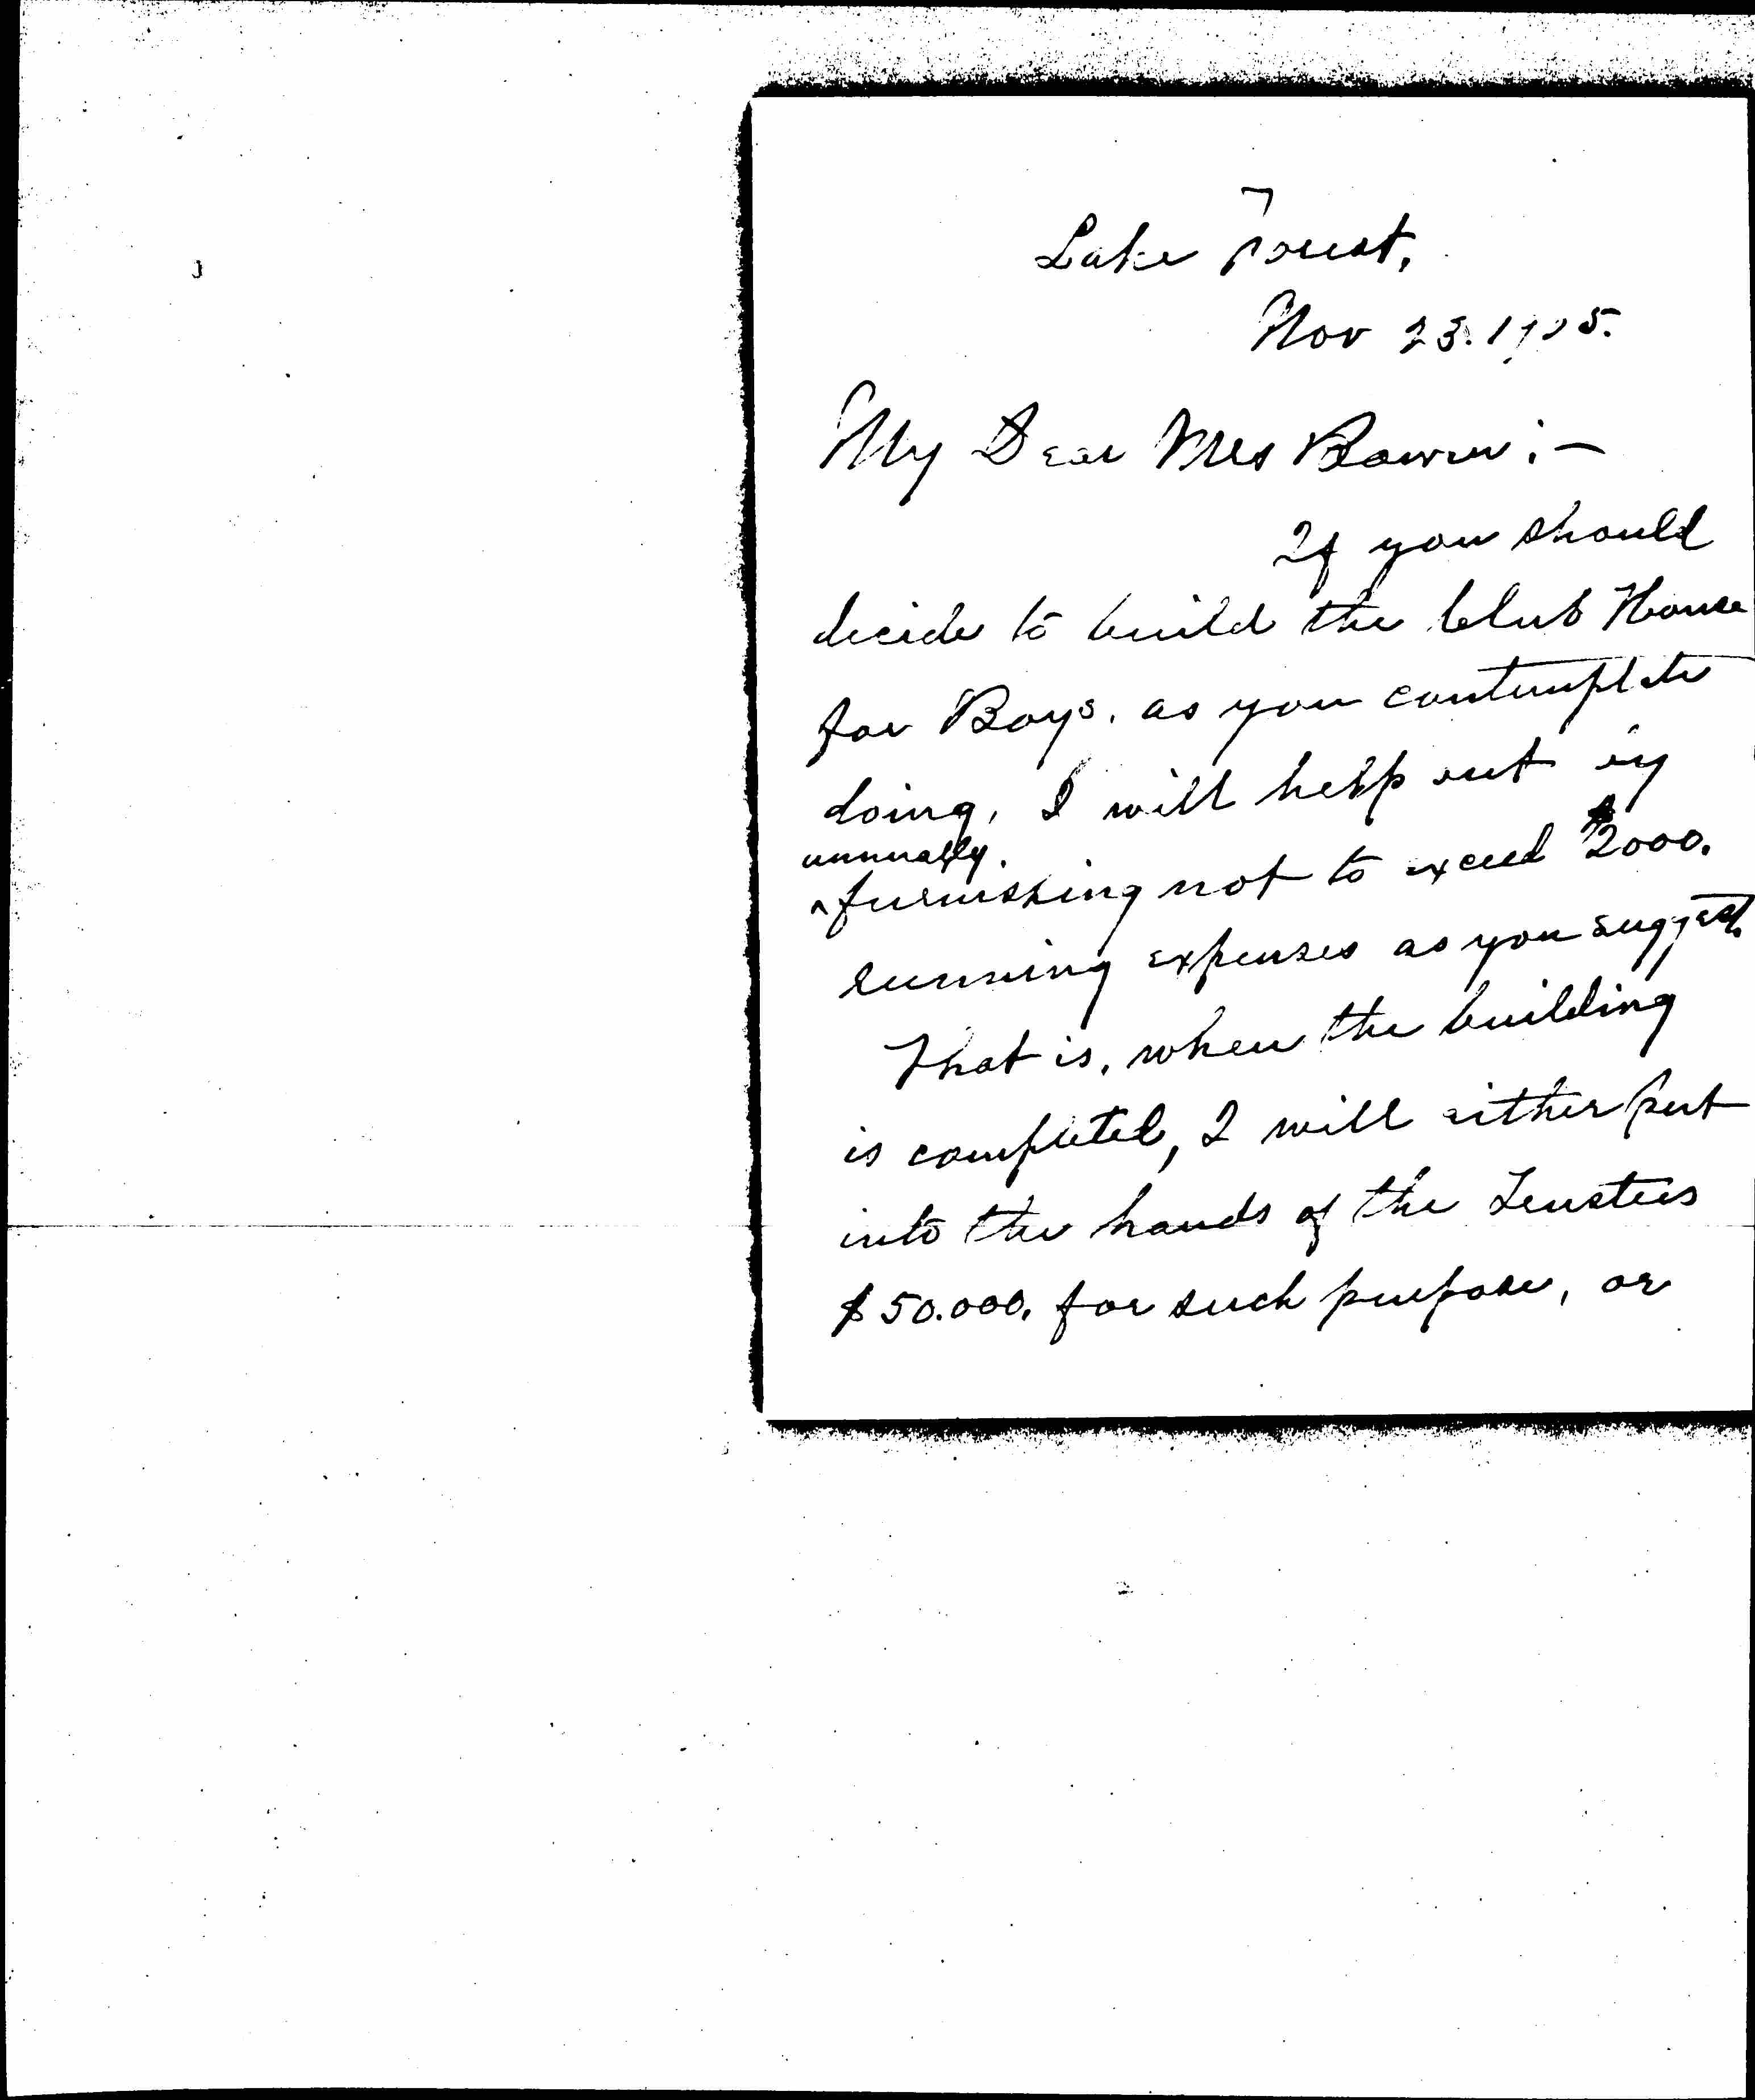 Lake Forest,
Nov 23. 1905.
My Dear Mrs Bowen :—
If you should
decide to build the Club House
for Boys. as you contemplate
doing, I will help out by
annually.
^furnishing not to exceed $2000.
running expenses as you suggest.
That is, when the building
is completed, I will either put
into the hands of the Trustees
$50.000. for such purpose, or